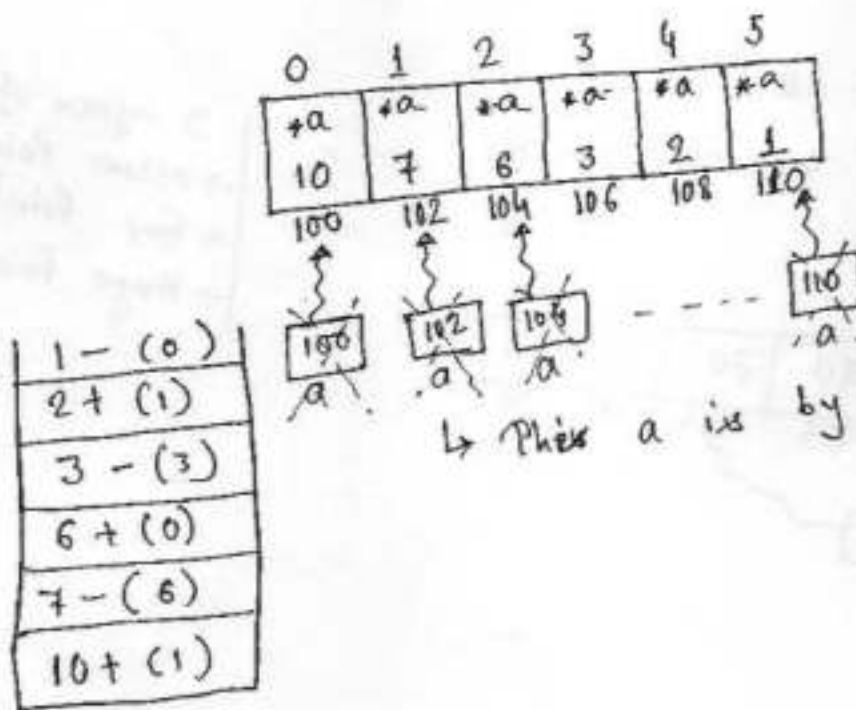 0 1 2 3 4 5
*a *a *a *a *a *a
10 7 6 3 2 1
100 102 104 106 108 110
100 102 104 ---- 110
a a a a
↳ a is by
1 - (0)
2 + (1)
3 - (3)
6 + (0)
7 - (6)
10 + (1)